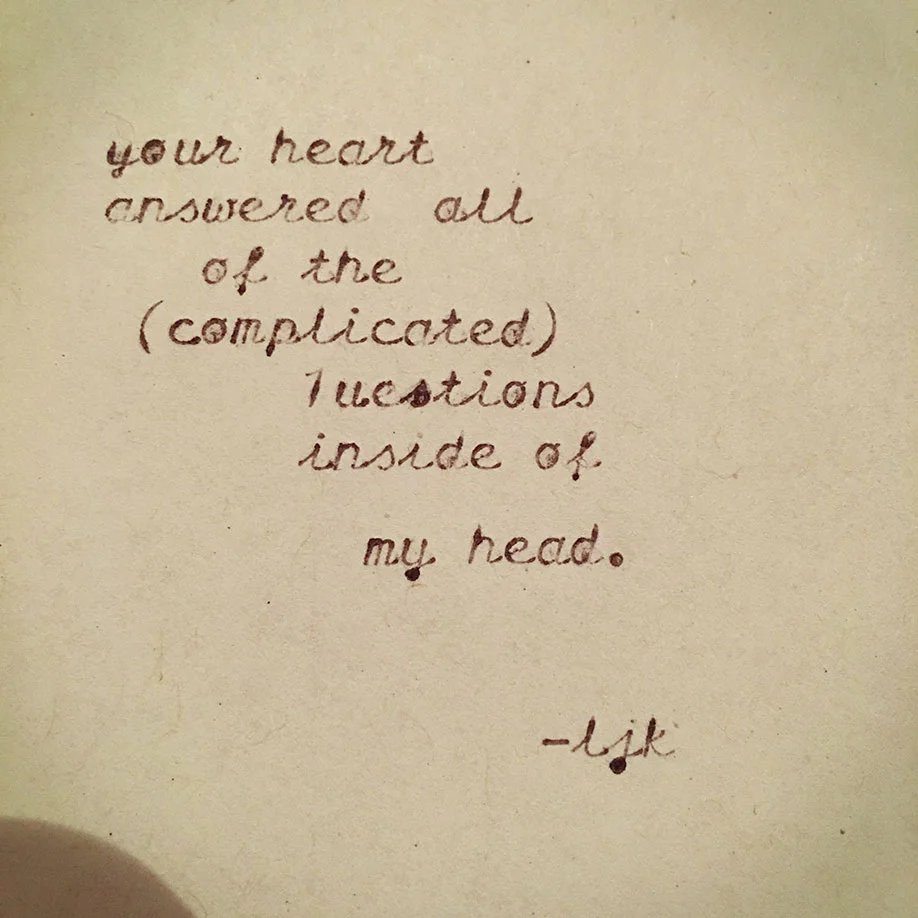 your heart
answered all
of the
(complicated)
1uestions
inside of
my head.
-ljk